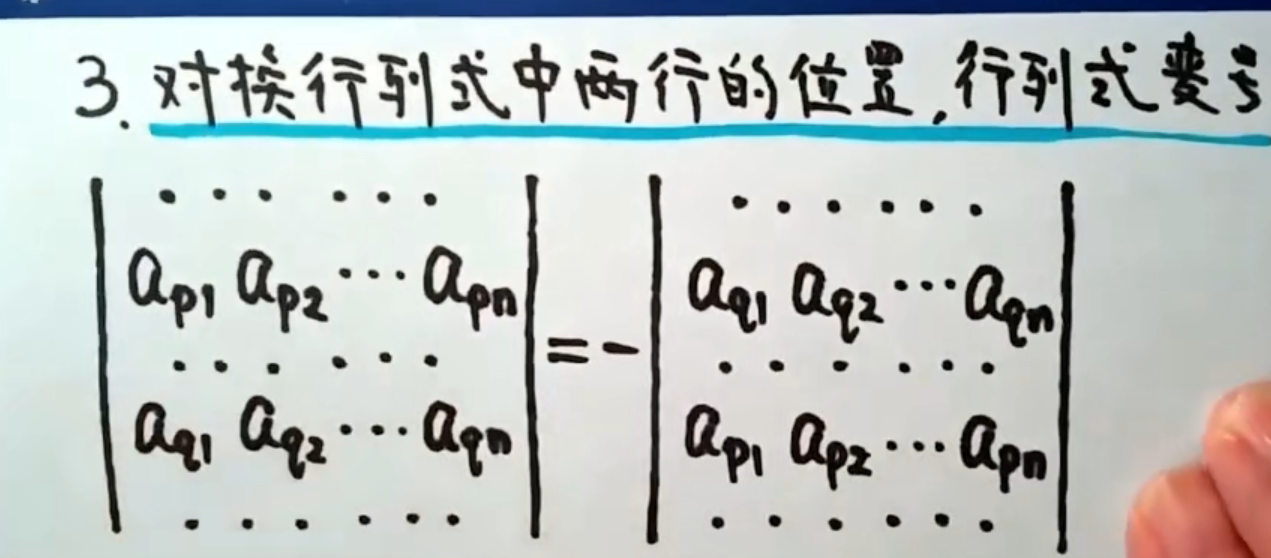 3. 对换行列式中两行的位置,行列式变号
· · · · · · · · · · · ·
a_{p1} a_{p2} ··· a_{pn} a_{q1} a_{q2} ··· a_{qn}
· · · · · · = - · · · · · ·
a_{q1} a_{q2} ··· a_{qn} a_{p1} a_{p2} ··· a_{pn}
· · · · · · · · · · · ·